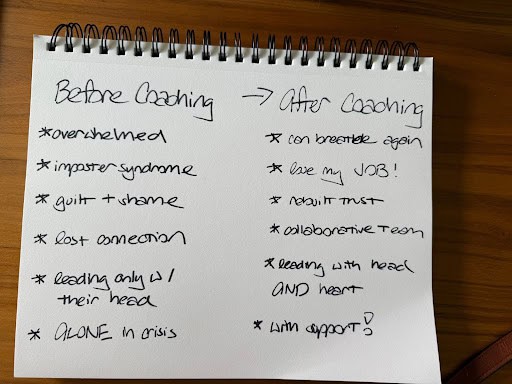 Before Coaching
* overwhelmed
* imposter syndrome
* guilt + shame
* lost connection
* leading only w/
their head
* ALONE in crisis
→ After Coaching
* can breathe again
* love my JOB!
* rebuilt trust
* collaborative team
* leading with head
AND heart
* with support!